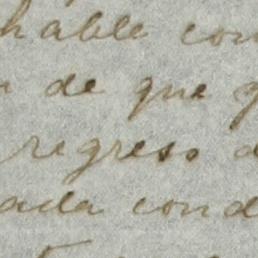 hable con
de que
regreso
ada cond